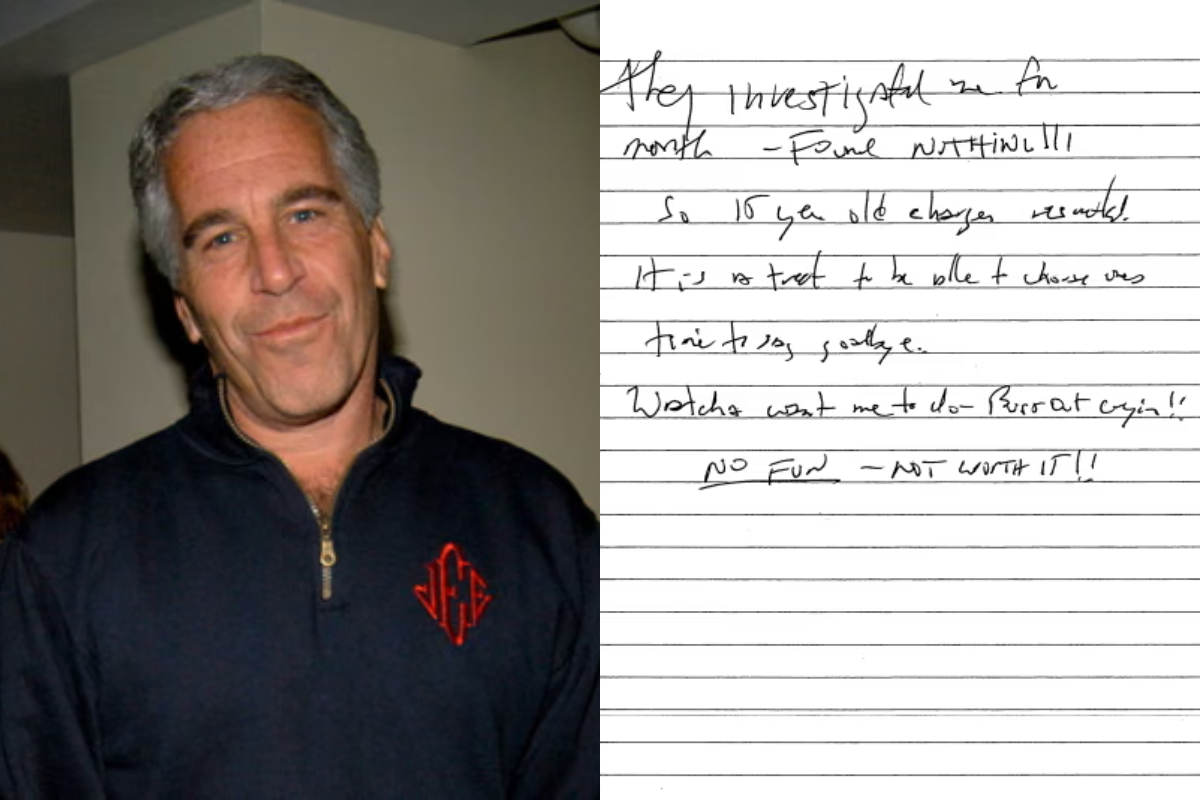 JEE
they investigated me for
month - Found NOTHING!!!
So year old charges resulted.
It is a treat to be able to choose ones
time to say goodbye.
Watcha want me to do - Burst out cryin!!
NO FUN - NOT WORTH IT!!